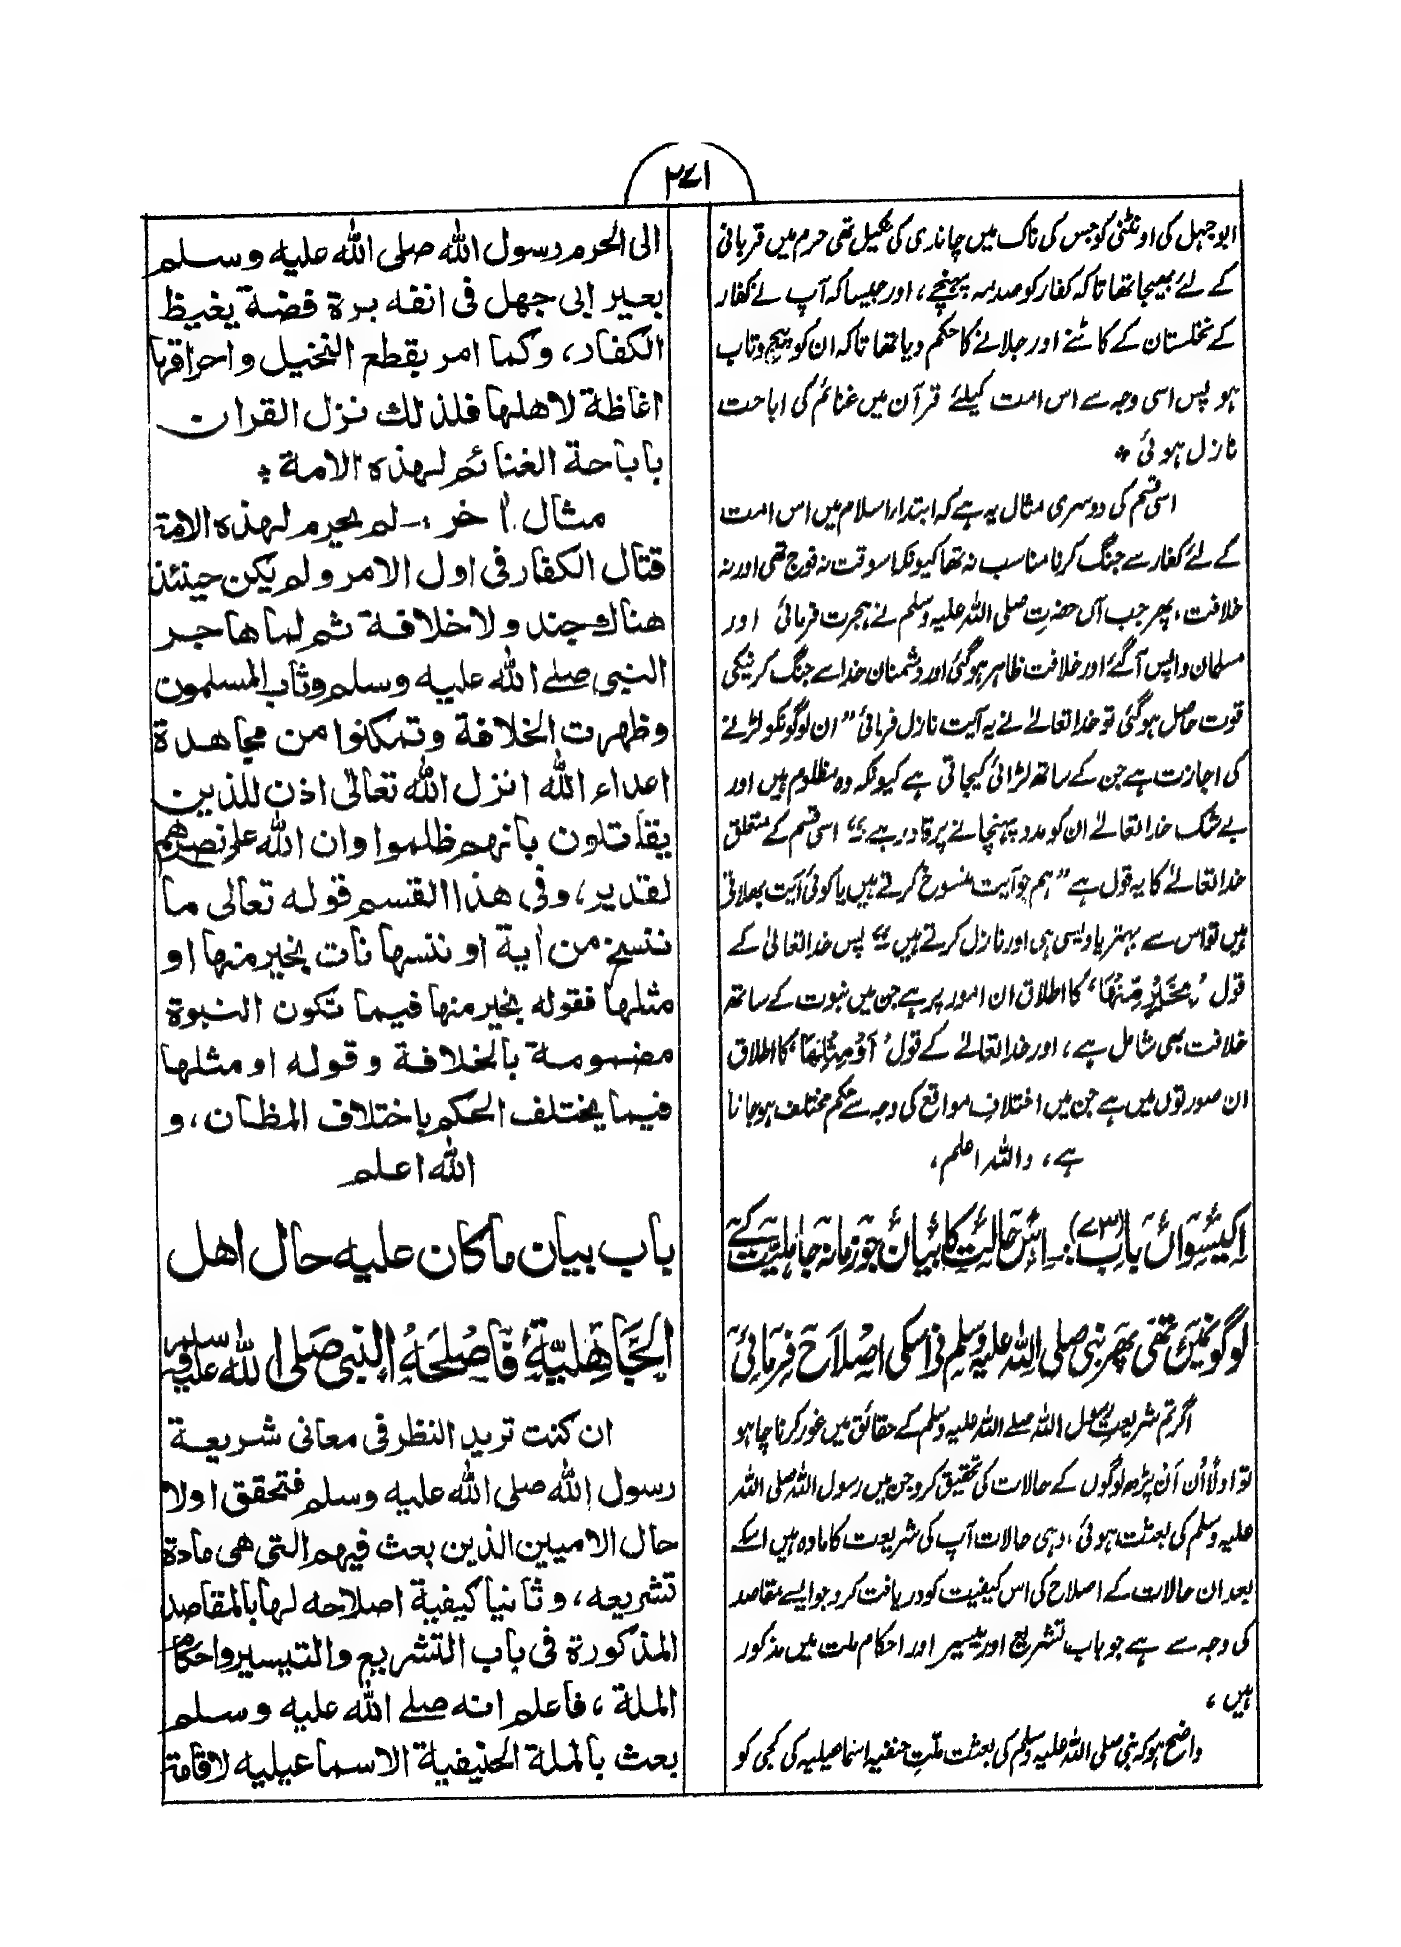 ۲۷۱
ابوجہل کی اونٹنی کو جس کی ناک میں چاندی کی نکیل تھی حرم میں قربانی
کے لئے بھیجا تھا تاکہ کفار کو صدمہ پہنچے، اور جیسا کہ آپ نے کفار
کے نخلستان کے کاٹنے اور جلانے کا حکم دیا تھا تاکہ ان کو پیچ و تاب
ہو پس اسی وجہ سے اس امت کیلئے قرآن میں غنائم کی اباحت
نازل ہوئی *
اسی قسم کی دوسری مثال یہ ہے کہ ابتداء اسلام میں اس امت
کے لئے کفار سے جنگ کرنا مناسب نہ تھا کیونکہ اسوقت نہ فوج تھی اور نہ
خلافت، پھر جب آں حضرت صلی اللہ علیہ وسلم نے ہجرت فرمائی اور
مسلمان واپس آگئے اور خلافت ظاہر ہوگئی اور دشمنان خدا سے جنگ کرنیکی
قوت حاصل ہوگئی تو خدا تعالےٰ نے یہ آیت نازل فرمائی "ان لوگونکو لڑنے
کی اجازت ہے جن کے ساتھ لڑائی کیجاتی ہے کیونکہ وہ مظلوم ہیں اور
بے شک خدا تعالےٰ ان کو مدد پہنچانے پر قادر ہے" اسی قسم کے متعلق
خدا تعالےٰ کا یہ قول ہے "ہم جو آیت منسوخ کرتے ہیں یا کوئی آیت بھلاتے
ہیں تو اس سے بہتر یا ویسی ہی اور نازل کرتے ہیں" پس خدا تعالیٰ کے
قول 'بِخَيْرٍ مِنْهَا' کا اطلاق ان امور پر ہے جن میں نبوت کے ساتھ
خلافت بھی شامل ہے، اور خدا تعالےٰ کے قول 'اَوْ مِثْلِهَا' کا اطلاق
ان صورتوں میں ہے جن میں اختلافِ مواقع کی وجہ سے حکم مختلف ہوجانا
ہے، واللہ اعلم،
اکیسواں باب (۷۳):۔ اس حالت کا بیان جو زمانہ جاہلیت کے
لوگونمیں تھی پھر نبی صلی اللہ علیہ وسلم نے اسکی اصلاح فرمائی
اگر تم شریعتِ رسول اللہ صلے اللہ علیہ وسلم کے حقائق میں غور کرنا چاہو
تو اولًا اُن اَن پڑھ لوگوں کے حالات کی تحقیق کرو جن میں رسول اللہ صلی اللہ
علیہ وسلم کی بعثت ہوئی، وہی حالات آپ کی شریعت کا مادہ ہیں اسکے
بعد ان حالات کے اصلاح کی اس کیفیت کو دریافت کرو جو ایسے مقاصد
کی وجہ سے ہے جو باب تشریع اور تیسیر اور احکام ملت میں مذکور
ہیں،
واضح ہو کہ نبی صلی اللہ علیہ وسلم کی بعثت ملتِ حنفیہ اسماعیلیہ کی کجی کو
الى الحرم رسول الله صلى الله عليه وسلم
بعير ابى جهل فى انفه برة فضة يغيظ
الكفار، وكما امر بقطع النخيل واحراقها
اغاظة لاهلها فلذلك نزل القران
باباحة الغنائم لهذه الامة *
مثال اٰخر :- لم يحرم لهذه الامة
قتال الكفار فى اول الامر ولم يكن حينئذ
هناك جند ولا خلافة ثم لما هاجر
النبى صلے الله عليه وسلم وثاب المسلمون
وظهرت الخلافة وتمكنوا من مجاهدة
اعداء الله انزل الله تعالىٰ اذن للذين
يقاتلون بانهم ظلموا وان الله على نصرهم
لقدير، وفى هذا القسم قوله تعالى ما
ننسخ من اٰية او ننسها نات بخير منها او
مثلها فقوله بخير منها فيما تكون النبوة
مضمومة بالخلافة وقوله او مثلها
فيما يختلف الحكم باختلاف المظان، و
الله اعلم
باب بيان ما كان عليه حال اهل
الجَاهليّةِ فَاصْلحَهُ النّبى صَلى الله عليه وسلم
ان كنت تريد النظر فى معانى شريعة
رسول الله صلى الله عليه وسلم فتحقق اولا
حال الاميين الذين بعث فيهم التى هى مادة
تشريعه، وثانيا كيفية اصلاحه لها بالمقاصد
المذكورة فى باب التشريع والتيسير واحكام
الملة، فاعلم انه صلے الله عليه وسلم
بعث بالملة الحنيفية الاسماعيلية لاقامة